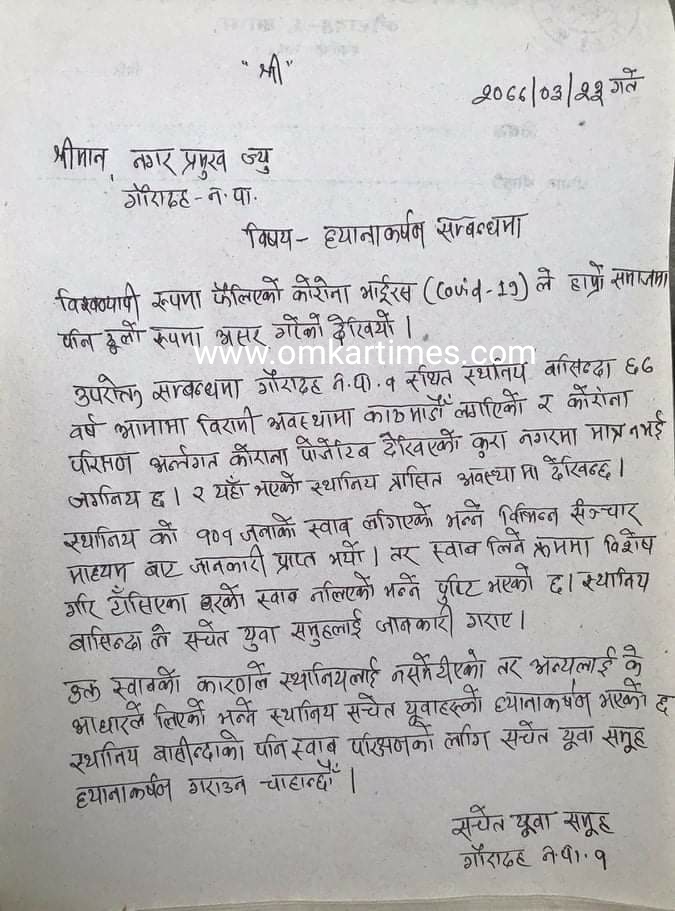 "श्री"
२०७७/०३/२३ गते
श्रीमान् नगर प्रमुख ज्यु
गौरादह - न.पा.
विषय - ध्यानाकर्षण सम्बन्धमा
विश्वव्यापी रुपमा फैलिएको कोरोना भाईरस (Covid-19) ले हाम्रो समाजमा
पनि ठूलो रुपमा असर गरेको देखियो।
www.omkartimes.com
उपरोक्त सम्बन्धमा गौरादह न.पा. १ स्थित स्थानिय बासिन्दा ६६
वर्ष आमामा विरामी अवस्थामा काठमाडौँ लगिएको र कोरोना
परिक्षण अर्न्तगत कोराना पोजेटिब देखिएको कुरा नगरमा मात्र नभई
र यहाँ भएको स्थानिय त्रासित अवस्थामा देखिन्छ।
स्थानिय को १०१ जनाको स्वाब लगिएको भन्ने विभिन्न सञ्चार
माध्यम बाट जानकारी प्राप्त भयो। तर स्वाब लिने क्रममा विशेष
गरि टाँसिएका घरको स्वाब नलिएको भन्ने पुष्टि भएको छ। स्थानिय
बासिन्दा ले सचेत युवा समुहलाई जानकारी गराए।
उक्त स्वाबको कारणले स्थानियलाई तर अन्यलाई के
आधारले लिएको भन्ने स्थानिय सचेत यूवाहरुको ध्यानाकर्षण भएको छ
स्थानिय बासीन्दाको पनि स्वाब परिक्षणको लागि सचेत यूवा समूह
ध्यानाकर्षण गराउन चाहान्छौँ।
सचेत यूवा समूह
गौरादह न.पा. १